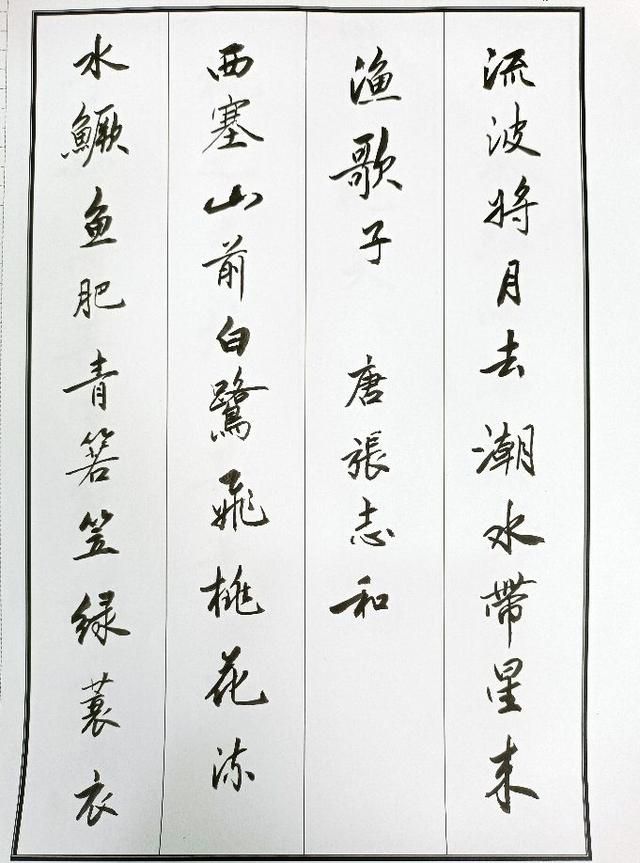 流波将月去潮水帶星来
渔歌子 唐張志和
西塞山前白鷺飛桃花流
水鱖鱼肥青箬笠绿蓑衣